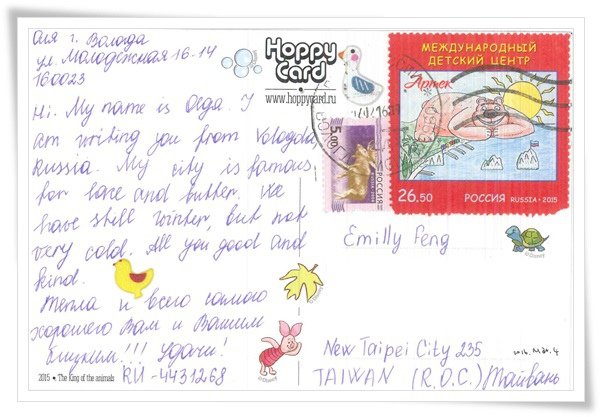 Оля г. Вологда
ул. Молодёжная 16-14
160023
Hi. My name is Olga. I
am writing you from Vologda,
Russia. My city is famous
for lace and butter. We
have still winter, but not
very cold. All you good and
kind.
Тепла и всего самого
хорошего Вам и Вашим
близким!!! Удачи!
RU-4431268
2015 • The King of the animals
Hoppy
Card
www.hoppycard.ru
5.00
РОССИЯ
МЕЖДУНАРОДНЫЙ
ДЕТСКИЙ ЦЕНТР
Артек
26.50 РОССИЯ RUSSIA • 2015
Emilly Feng
©Disney
©Disney
©Disney
New Taipei City 235
TAIWAN (R.O.C.) Тайвань